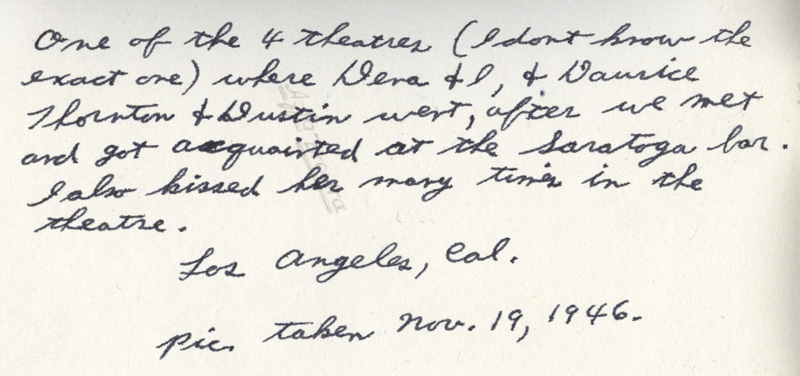 One of the 4 theatres (I dont know the
exact one) where &I, & Daurice
Thornton & Dustin went, after we met
and got acquainted at the Saratoga bar.
I also kissed her many times in the
theatre.
Los Angeles, Cal.
Pic. taken Nov. 19, 1946.